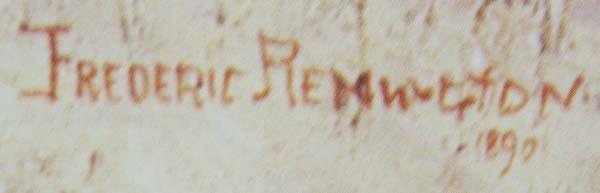 FREDERIC REMINGTON.
1890